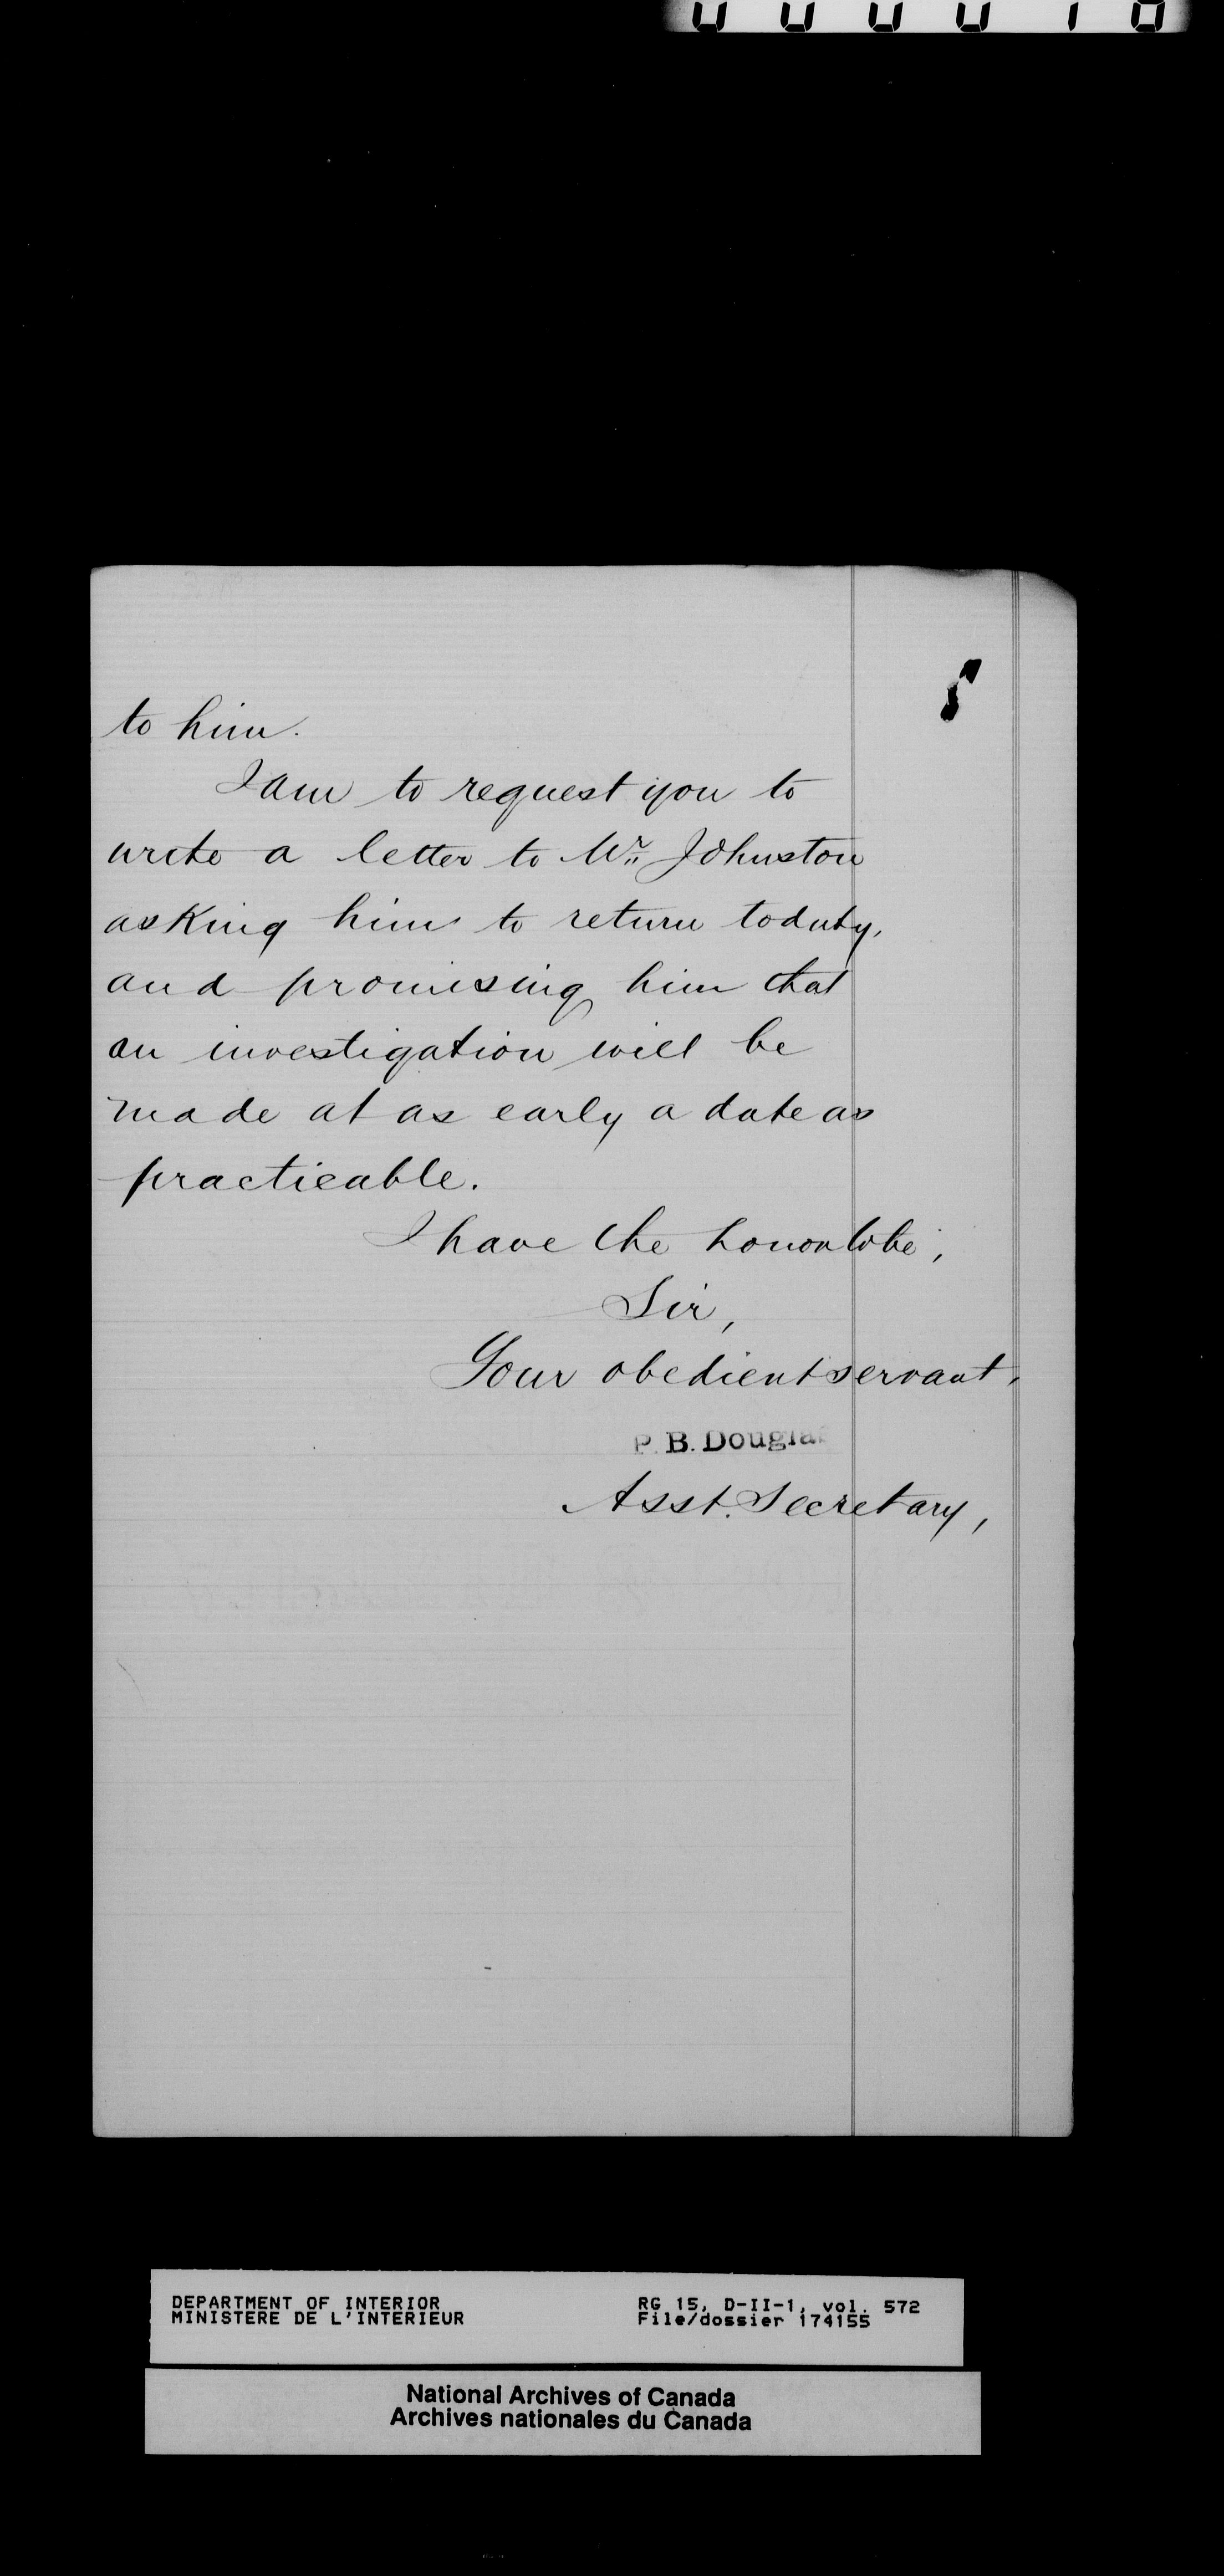 to him.
I am to request you to
write a letter to Mr. Johnston
asking him to return to duty,
and promising him that
an investigation will be
made at as early a date as
practicable.
I have the honor to be,
Sir,
Your obedient servant,
P. B. Douglas
Asst. Secretary,
DEPARTMENT OF INTERIOR
MINISTERE DE L'INTERIEUR
RG 15, D-II-1, vol. 572
File/dossier 174155
National Archives of Canada
Archives nationales du Canada